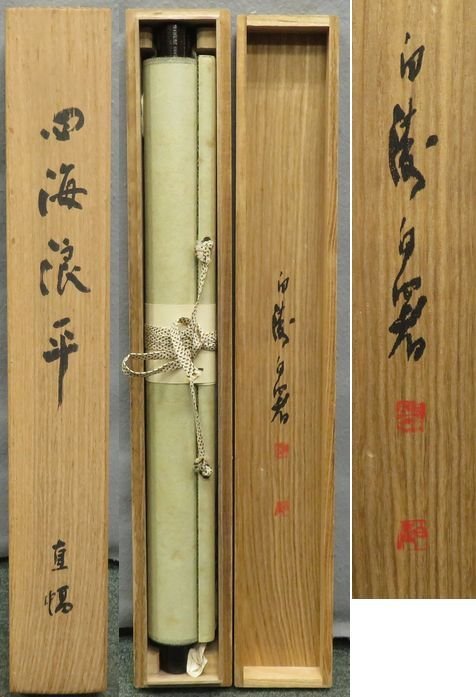 四海浪平
直幅
白濤自署
白濤自署